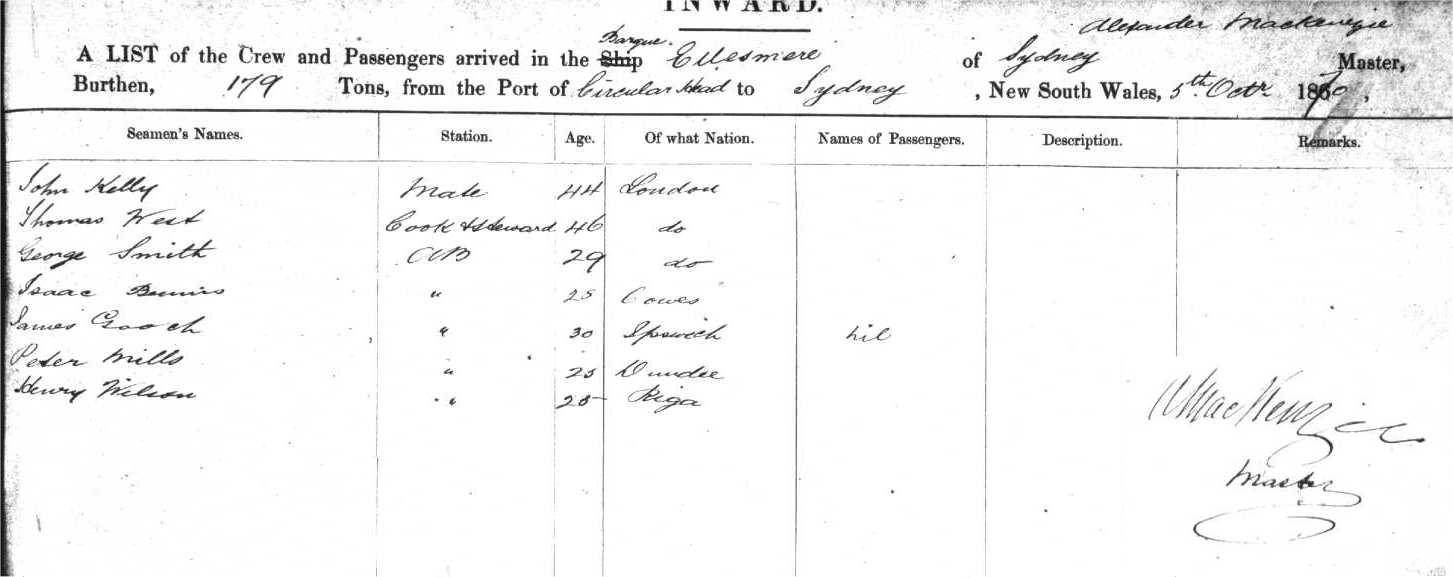 INWARD.
Alexander Mackenzie
Barque
A LIST of the Crew and Passengers arrived in the Ship Ellesmere of Sydney Master,
Burthen, 179 Tons, from the Port of Circular Head to Sydney, New South Wales, 5th Octr 1870,
Seamen's Names. Station. Age. Of what Nation. Names of Passengers. Description. Remarks.
John Kelly Mate 44 London
Thomas West Cook & Steward 46 do
George Smith AB 29 do
Isaac " 25 Cowes
James Gooch " 30 Ipswich nil
Peter Mills " 25 Dundee
Henry Wilson " 25 Riga
A MacKenzie
Master